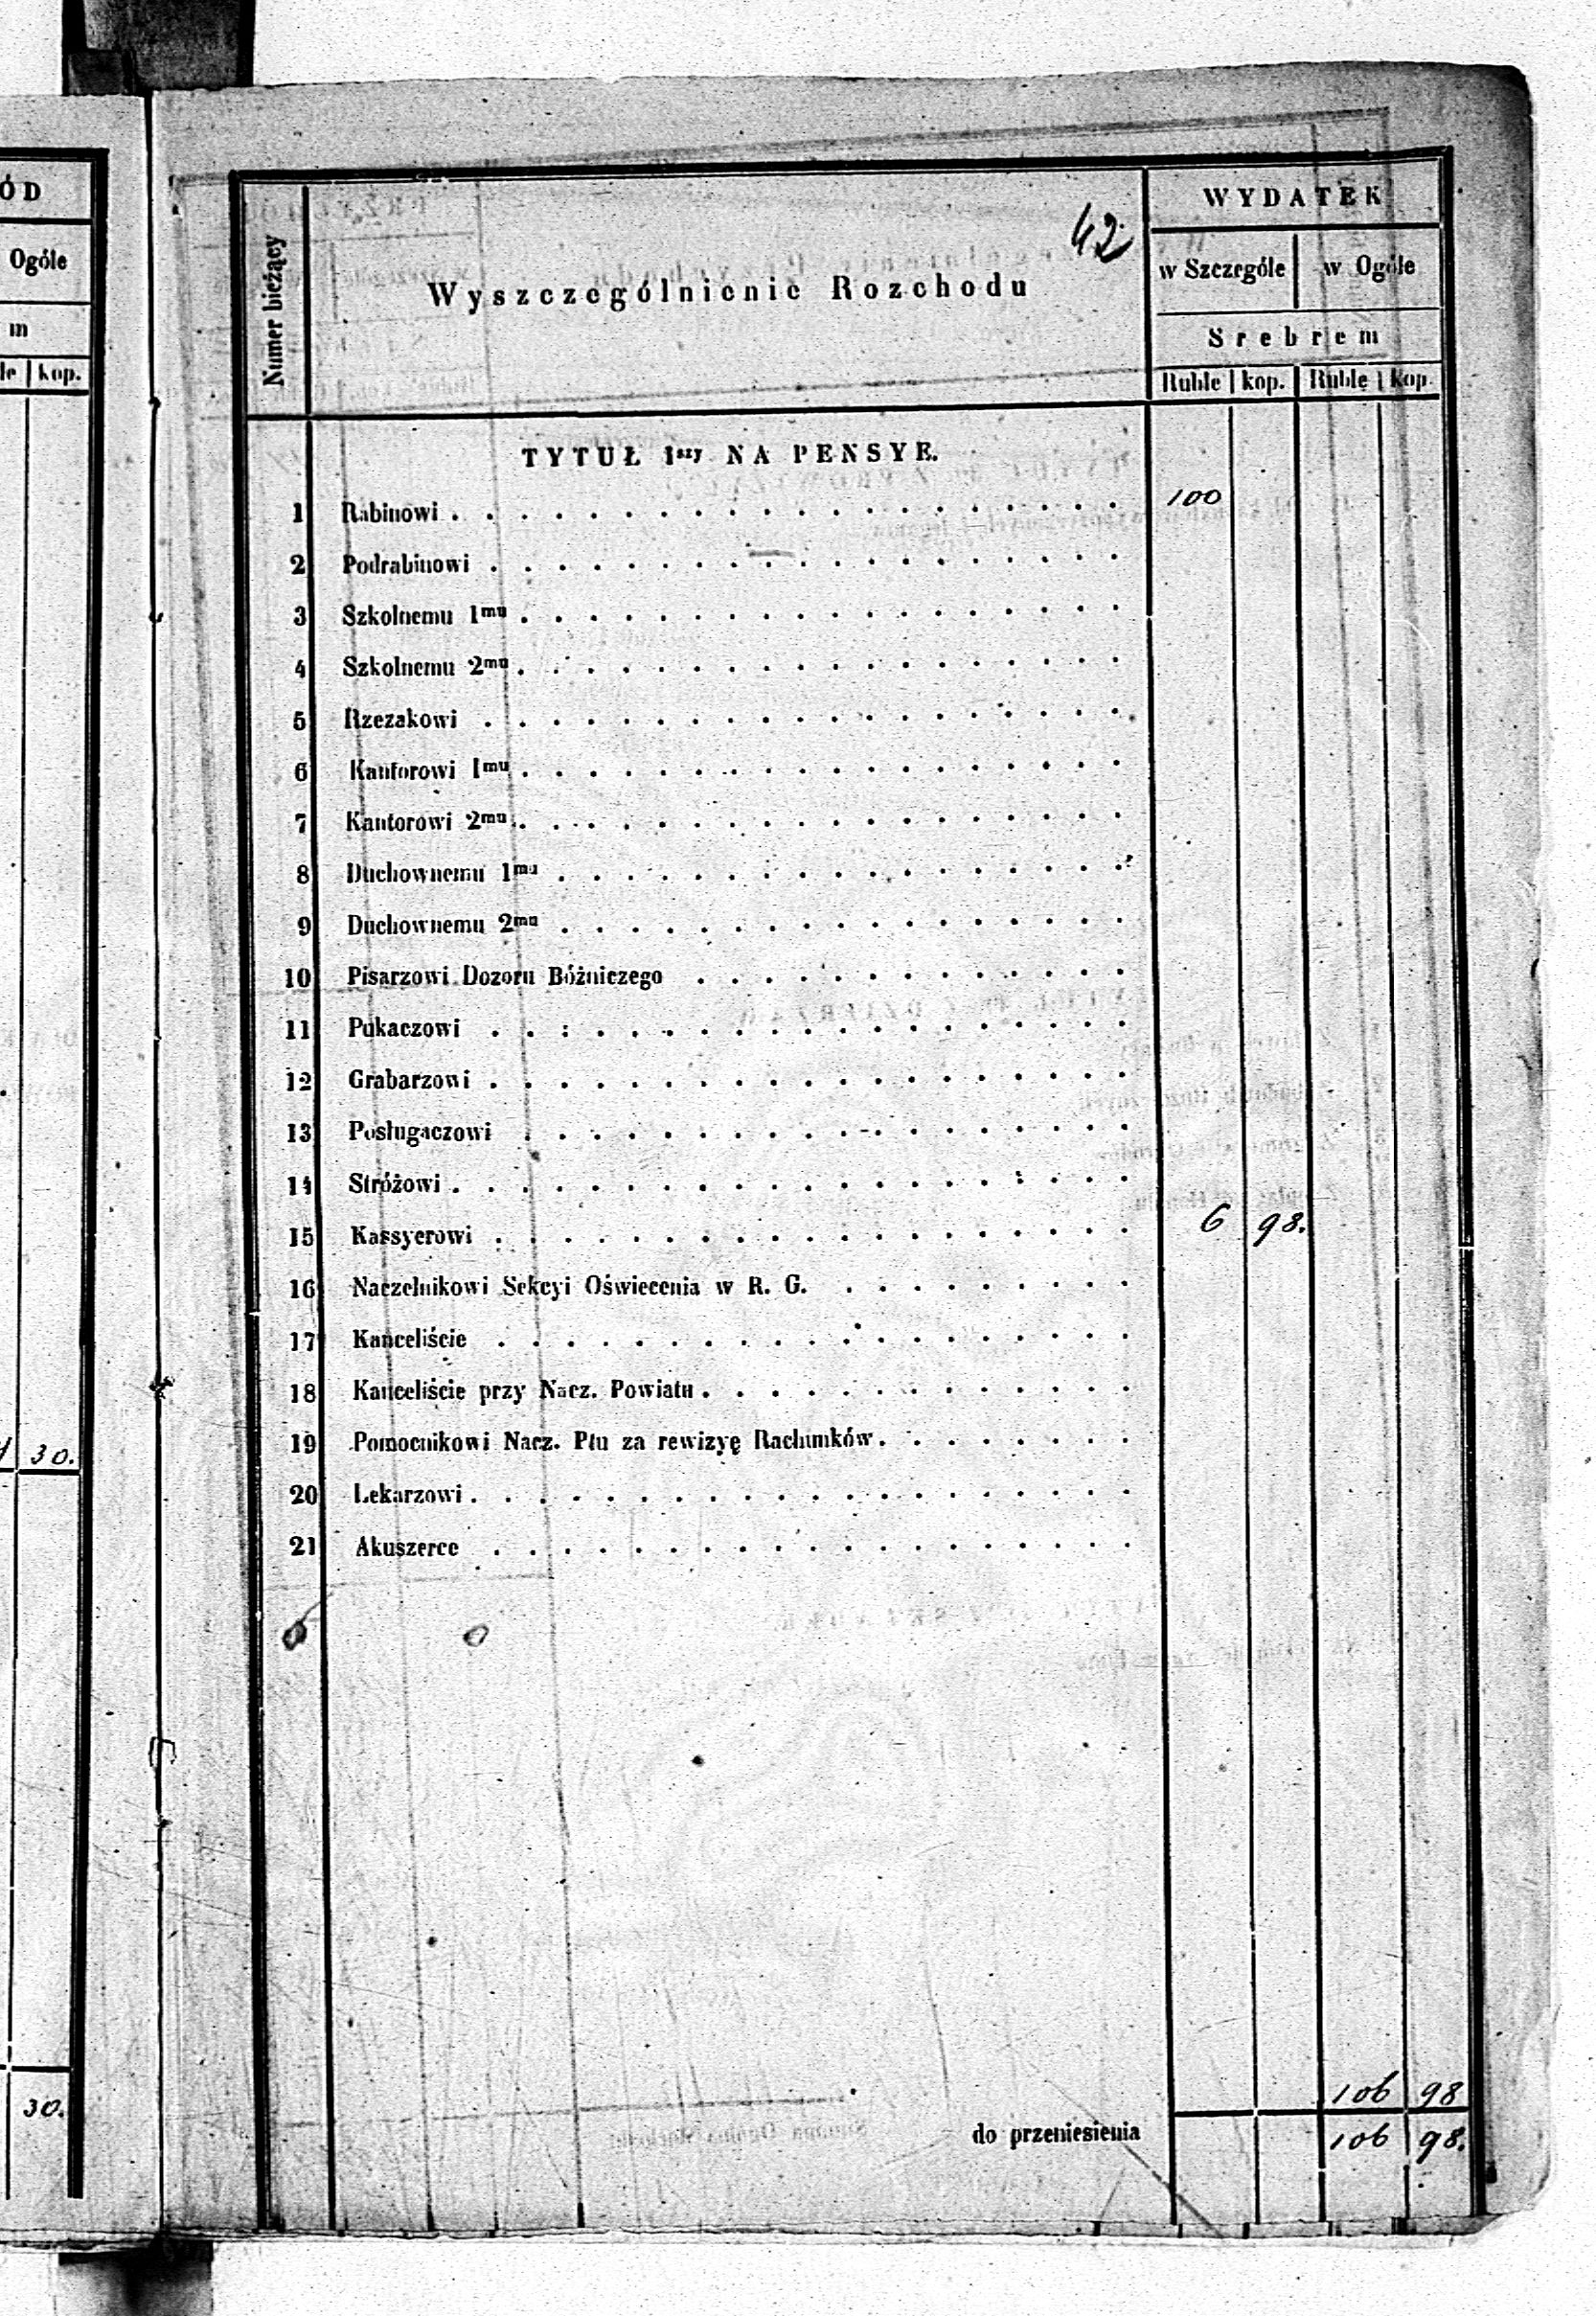 ÓD
Ogóle
m
le kop.
30.
30.
42
WYDATEK
Numer bieżący
Wyszczególnienie Rozchodu
w Szczególe w Ogóle
Srebrem
Ruble kop. Ruble kop.
TYTUŁ 1szy NA PENSYE.
1 Rabinowi . . . . . . . . . . . . . . . . . . . . 100
2 Podrabinowi . . . . . . . . . . . . . . . . . . .
3 Szkolnemu 1mu . . . . . . . . . . . . . . . . . .
4 Szkolnemu 2mu . . . . . . . . . . . . . . . . . .
5 Rzezakowi . . . . . . . . . . . . . . . . . . .
6 Kantorowi 1mu . . . . . . . . . . . . . . . . . .
7 Kantorowi 2mu . . . . . . . . . . . . . . . . . .
8 Duchownemu 1mu . . . . . . . . . . . . . . . . .
9 Duchownemu 2mu . . . . . . . . . . . . . . . . .
10 Pisarzowi Dozoru Bóżniczego . . . . . . . . . . . . .
11 Pukaczowi . . . . . . . . . . . . . . . . . . .
12 Grabarzowi . . . . . . . . . . . . . . . . . . .
13 Posługaczowi . . . . . . . . . . . . . . . . . .
14 Stróżowi . . . . . . . . . . . . . . . . . . . .
15 Kassyerowi . . . . . . . . . . . . . . . . . . . 6 98.
16 Naczelnikowi Sekcyi Oświecenia w R. G. . . . . . . . . .
17 Kanceliście . . . . . . . . . . . . . . . . . . .
18 Kanceliście przy Nacz. Powiatu . . . . . . . . . . . . .
19 Pomocnikowi Nacz. Ptu za rewizyę Rachunków . . . . . . . .
20 Lekarzowi . . . . . . . . . . . . . . . . . . . .
21 Akuszerce . . . . . . . . . . . . . . . . . . .
106 98
do przeniesienia 106 98.